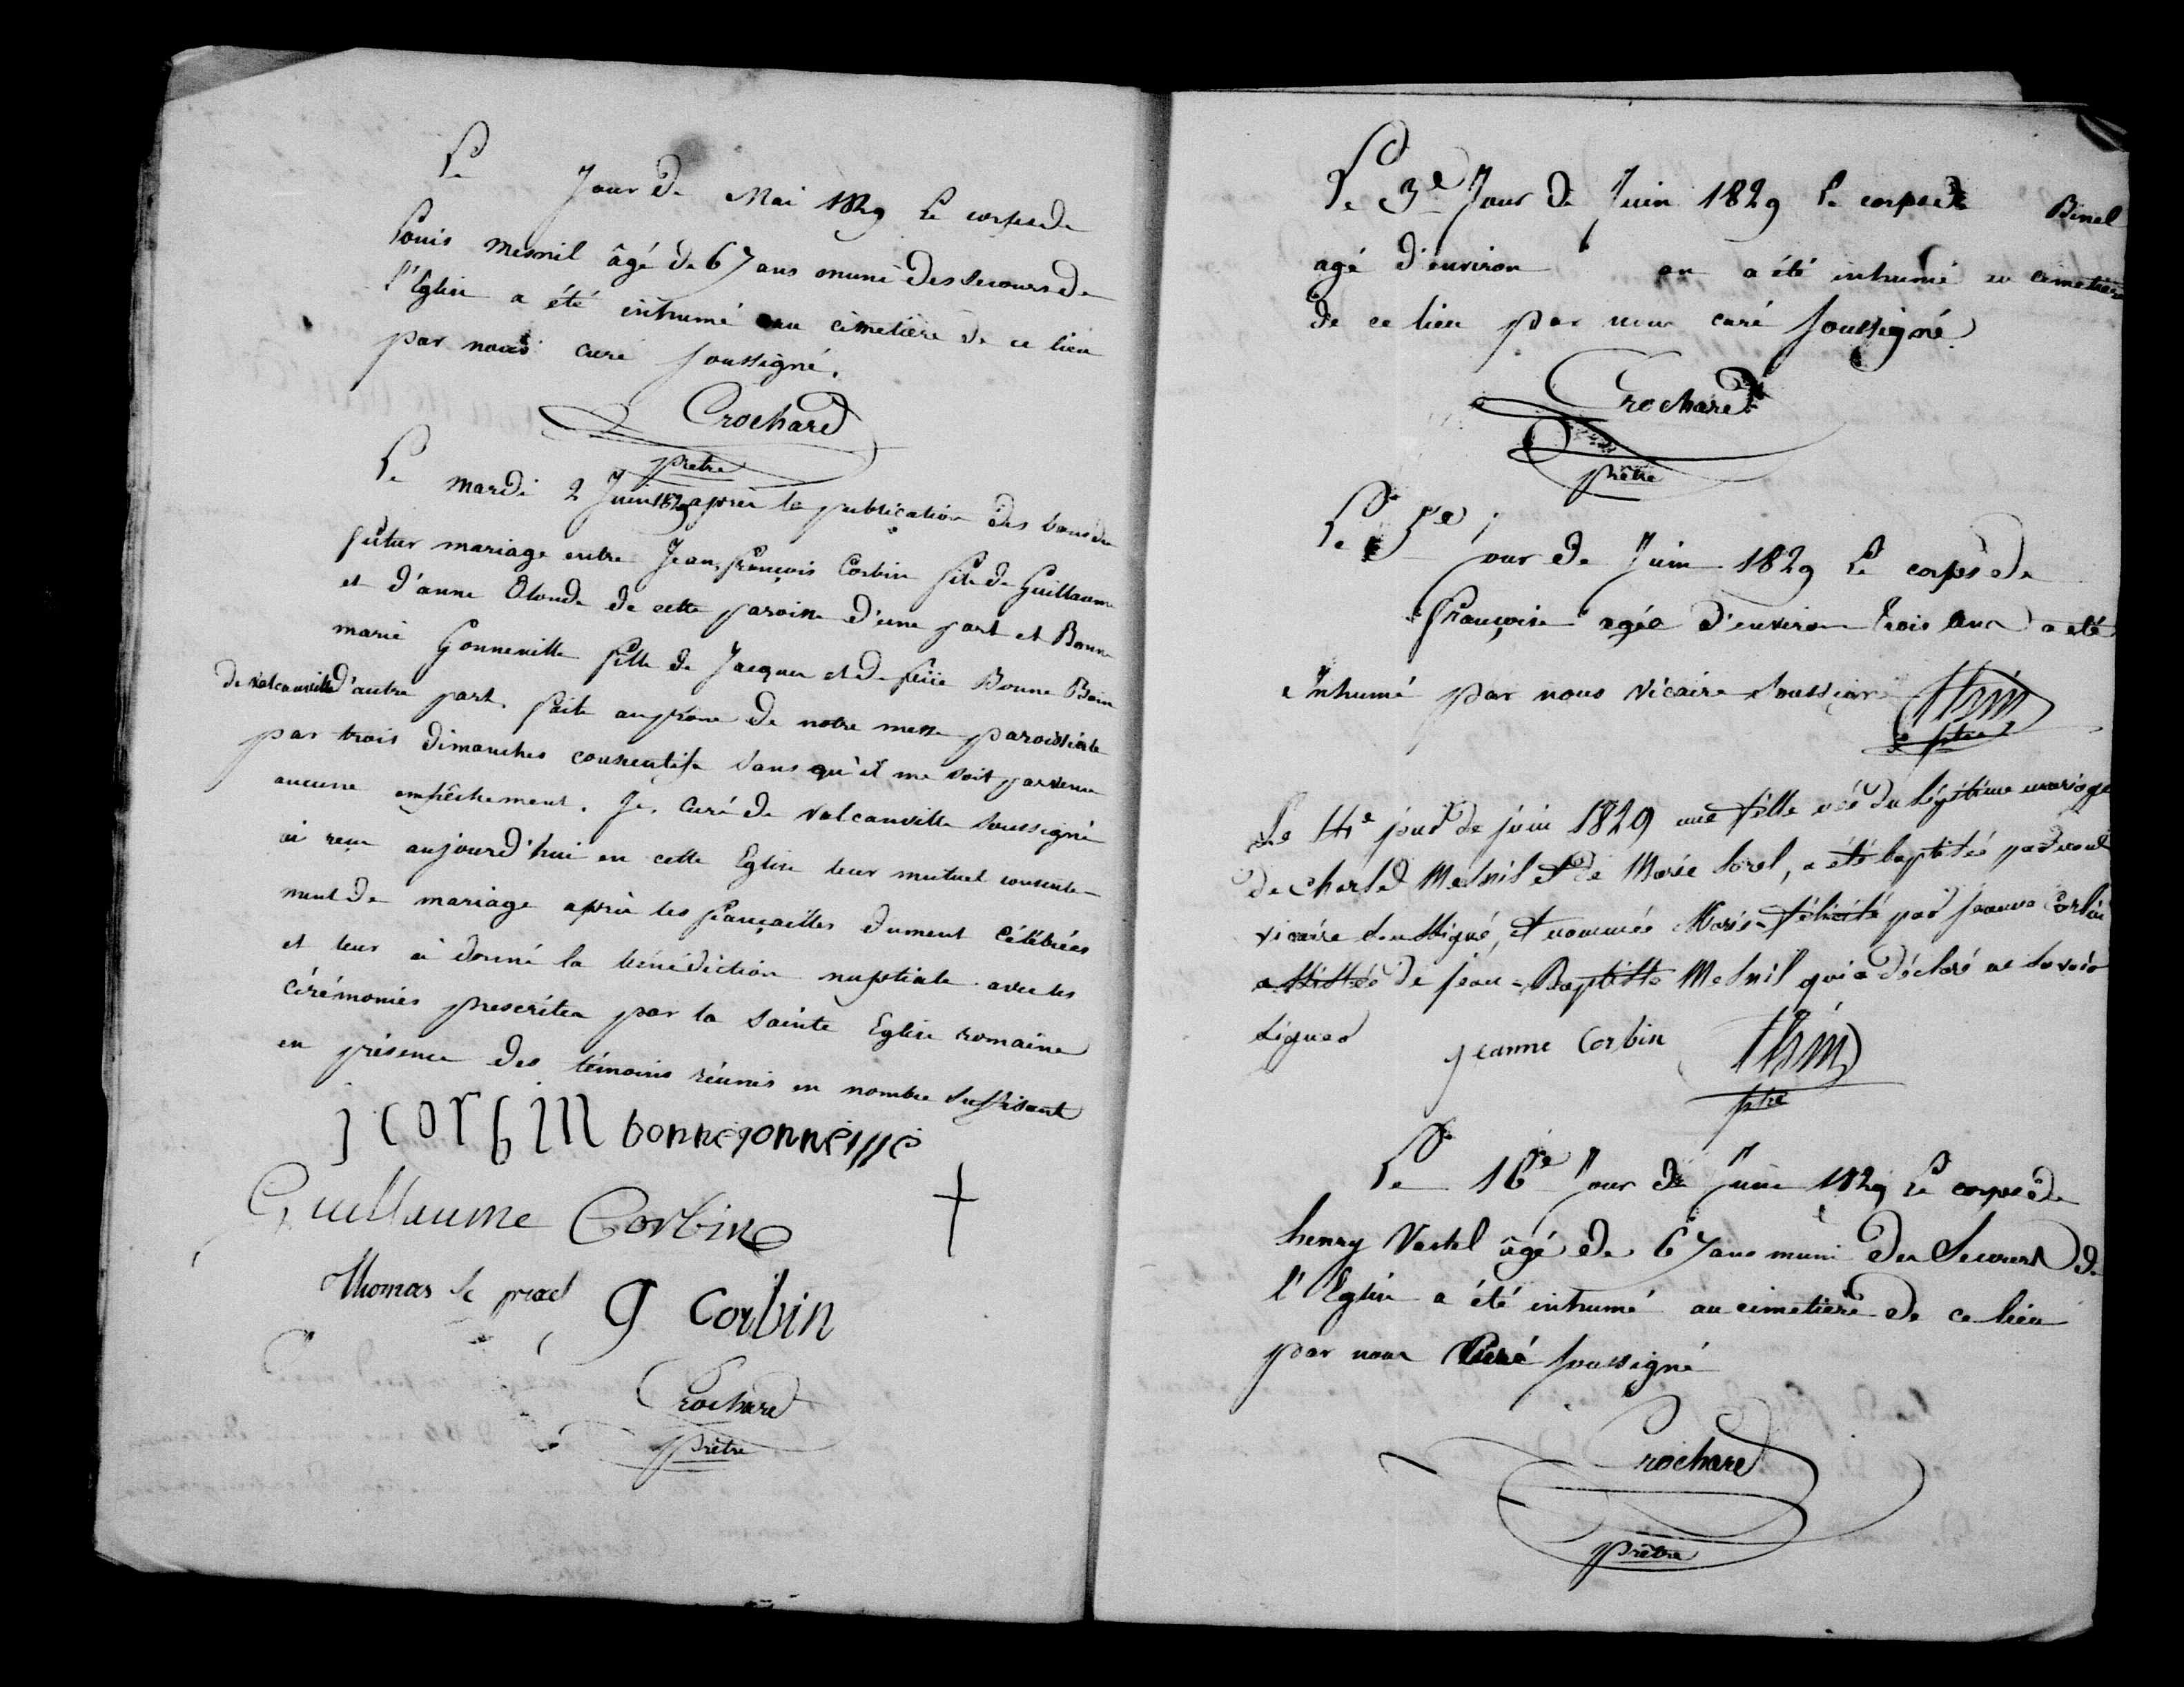 Le Jour de Mai 1829 Le corps de
Louis Mesnil âgé de 67 ans muni des secours de
l'Eglise a été inhumé au cimetière de ce lieu
par nous curé soussigné.
Crochard
prêtre
Le mardi 2 Juin 1829 après la publication des bans du
futur mariage entre Jean François Corbin fils de Guillaume
et d'anne Olonde de cette paroisse d'une part et Bonne
marie Gonneville fille de Jacques et de feüe Bonne
de valcanville d'autre part, faite au prone de notre messe paroissiale
par trois dimanches consecutifs sans qu'il me soit parvenu
aucune empêchement. Je, curé de valcanville soussigné
ai reçu aujourd'hui en cette Eglise leur mutuel consente-
ment de mariage après les fiançailles dument célébrées
et leur ai donné la bénédiction nuptiale avec les
cérémonies prescrites par la sainte Eglise romaine
en présence des témoins réunis en nombre suffisant
j corbin bonne gonneville
Guillaume Corbin
Thomas le
g corbin
Crochard
prêtre
Le 3e Jour de Juin 1829 Le corps de Binel
agé d'environ an a été inhumé au cimetière
de ce lieu par nous curé soussigné
Crochard
prêtre
Le 5e jour de Juin 1829 Le corps de
Françoise agée d'environ trois ans a été
Inhumé par nous vicaire soussigné
ptre
Le 14e jour de juin 1829 une fille née du légitime mariage
de Charles Mesnil et de Marie Sorel, a été baptisée par nous
vicaire soussigné, et nommée Marie-félicité par jeanne Corbin
assistée de jean-Baptiste Mesnil qui a déclaré ne savoir
signer
jeanne Corbin
ptre
Le 16e Jour de Juin 1829 Le corps de
henry Vastel âgé de 67 ans muni des Secours de
l'Eglise a été inhumé au cimetière de ce lieu
par nous Curé soussigné
Crochard
prêtre